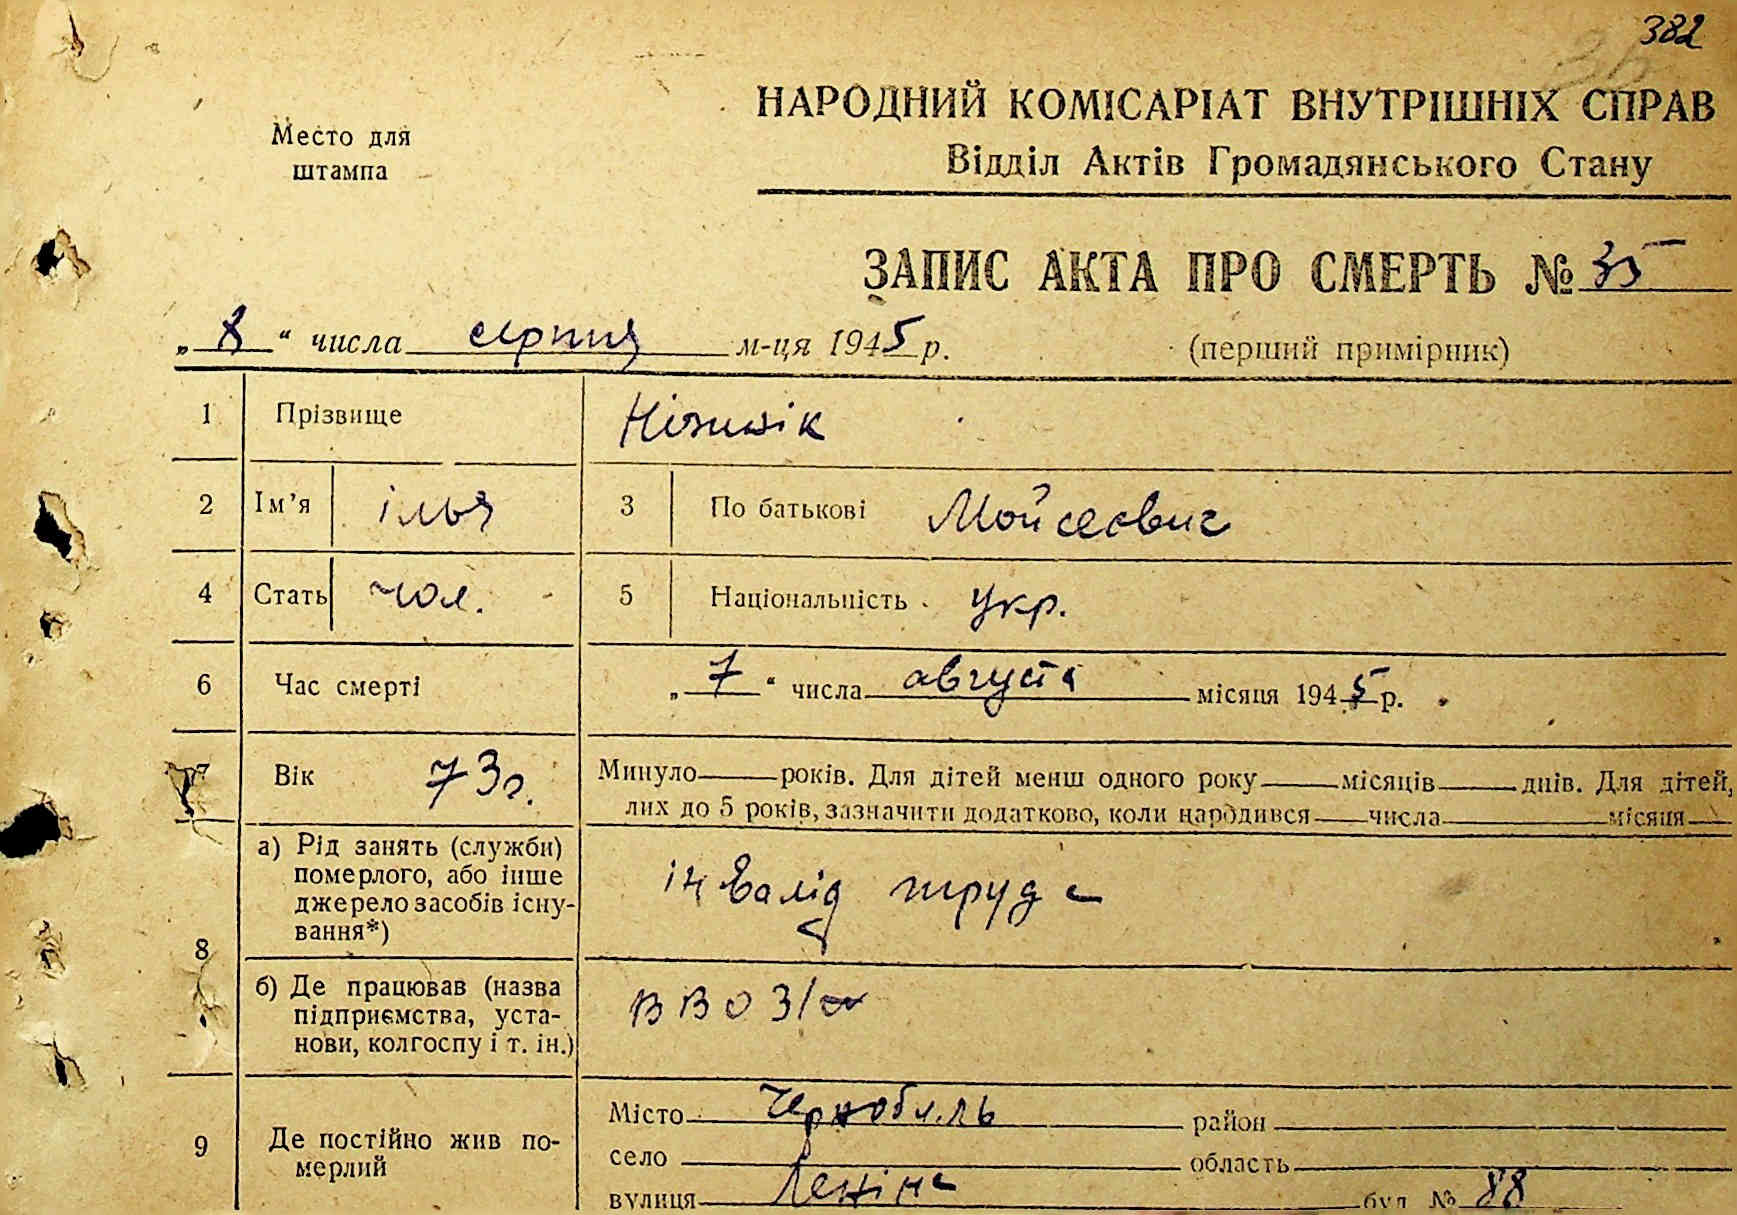 382
Место для
штампа
НАРОДНИЙ КОМІСАРІАТ ВНУТРІШНІХ СПРАВ
Відділ Актів Громадянського Стану
ЗАПИС АКТА ПРО СМЕРТЬ № 35
„ 8 “ числа серпня м-ця 1945 р. (перший примірник)
1 Прізвище
2 Ім’я ілья 3 По батькові Мойсеевич
4 Стать чол. 5 Національність укр.
6 Час смерті „ 7 “ числа августа місяця 1945 р.
7 Вік 73 г. Минуло років. Для дітей менш одного року місяців днів. Для дітей,
лих до 5 років, зазначити додатково, коли народився числа місяця
8 а) Рід занять (служби)
померлого, або інше
джерело засобів існу-
вання*) інвалід труда
б) Де працював (назва
підприємства, уста-
нови, колгоспу і т. ін.)
9 Де постійно жив по-
мерлий
Місто Чернобиль район
село область
вулиця Леніна буд № 88